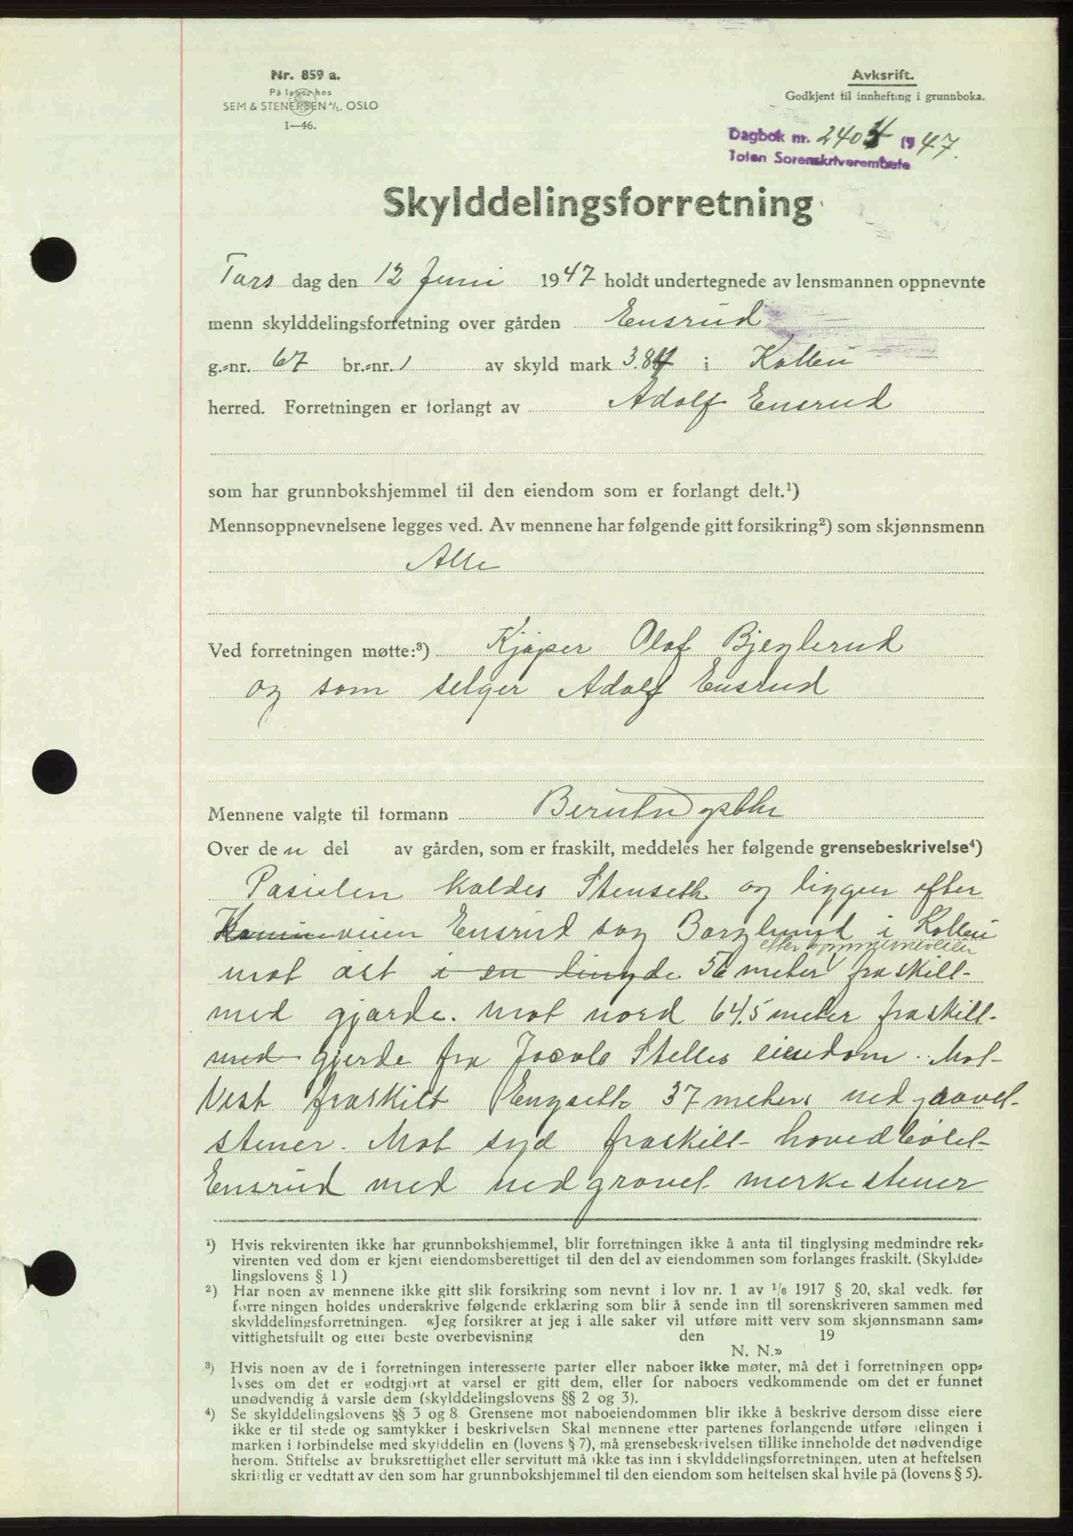 Nr. 859 a.
På lager hos
SEM & STENERSEN A/S, OSLO
1—46.
Avksrift.
Godkjent til innhefting i grunnboka.
Dagbok nr. 2404 1947.
Toten Sorenskriverembete
Skylddelingsforretning
Tors dag den 12 Juni 1947 holdt undertegnede av lensmannen oppnevnte
menn skylddelingsforretning over gården Ensrud
g.-nr. 67 br.-nr. 1 av skyld mark 3.84 i Kolbu
herred. Forretningen er forlangt av Adolf Ensrud
som har grunnbokshjemmel til den eiendom som er forlangt delt.¹)
Mennsoppnevnelsene legges ved. Av mennene har følgende gitt forsikring²) som skjønnsmenn
Alle
Ved forretningen møtte:³) Kjøper Olaf Bjeglerud
og som selger Adolf Ensrud
Mennene valgte til formann
Over den del av gården, som er fraskilt, meddeles her følgende grensebeskrivelse⁴)
kaldes Stenseth og ligger efter
veien Ensrud og i Kolbu
mot øst i en lengde 56 meter fraskilt
med gjærde. Mot nord 64.5 meter fraskilt
med gjerde fra Jacob Stelles eiendom. Mot
Vest fraskilt Engseth 37 meter nedgravet
stener. Mot syd fraskilt hovedbølet
Ensrud med nedgravet merkestener
¹) Hvis rekvirenten ikke har grunnbokshjemmel, blir forretningen ikke å anta til tinglysing medmindre rek-
virenten ved dom er kjent eiendomsberettiget til den del av eiendommen som forlanges fraskilt. (Skyldde-
lingslovens § 1)
²) Har noen av mennene ikke gitt slik forsikring som nevnt i lov nr. 1 av 1/6 1917 § 20, skal vedk. før
forretningen holdes underskrive følgende erklæring som blir å sende inn til sorenskriveren sammen med
skylddelingsforretningen. «Jeg forsikrer at jeg i alle saker vil utføre mitt verv som skjønnsmann sam-
vittighetsfullt og etter beste overbevisning den 19
N. N.»
³) Hvis noen av de i forretningen interesserte parter eller naboer ikke møter, må det i forretningen opp-
lyses om det er godtgjort at varsel er gitt dem, eller for naboers vedkommende om det er funnet
unødvendig å varsle dem (skylddelingslovens §§ 2 og 3).
⁴) Se skylddelingslovens §§ 3 og 8. Grensene mot naboeiendommen blir ikke å beskrive dersom disse eiere
ikke er til stede og samtykker i beskrivelsen Skal mennene etter partenes forlangende utføre delingen i
marken i forbindelse med skylddelingen (lovens § 7), må grensebeskrivelsen tillike inneholde det nødvendige
herom. Stiftelse av bruksrettighet eller servitutt må ikke tas inn i skylddelingsforretningen. uten at heftelsen
skriftlig er vedtatt av den som har grunnbokshjemmel til den eiendom som heftelsen skal hvile på (lovens § 5).